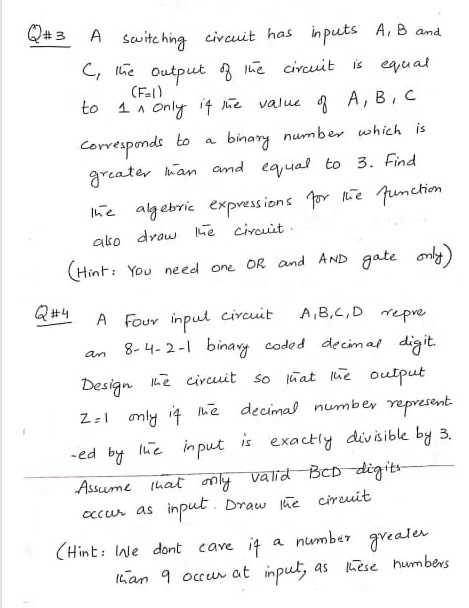 Q#3 A switching circuit has inputs A, B and
C, the output of the circuit is equal
(F=1)
to 1 ^ only if the value of A, B, C
corresponds to a binary number which is
greater than and equal to 3. Find
the algebric expressions for the function
also draw the circuit.
(Hint: You need one OR and AND gate only)
Q#4 A Four input circuit A,B,C,D repre
an 8-4-2-1 binary coded decimal digit.
Design the circuit so that the output
Z=1 only if the decimal number represent
-ed by the input is exactly divisible by 3.
Assume that only valid BCD digits
occur as input. Draw the circuit
(Hint: We dont care if a number greater
than 9 occur at input, as these numbers